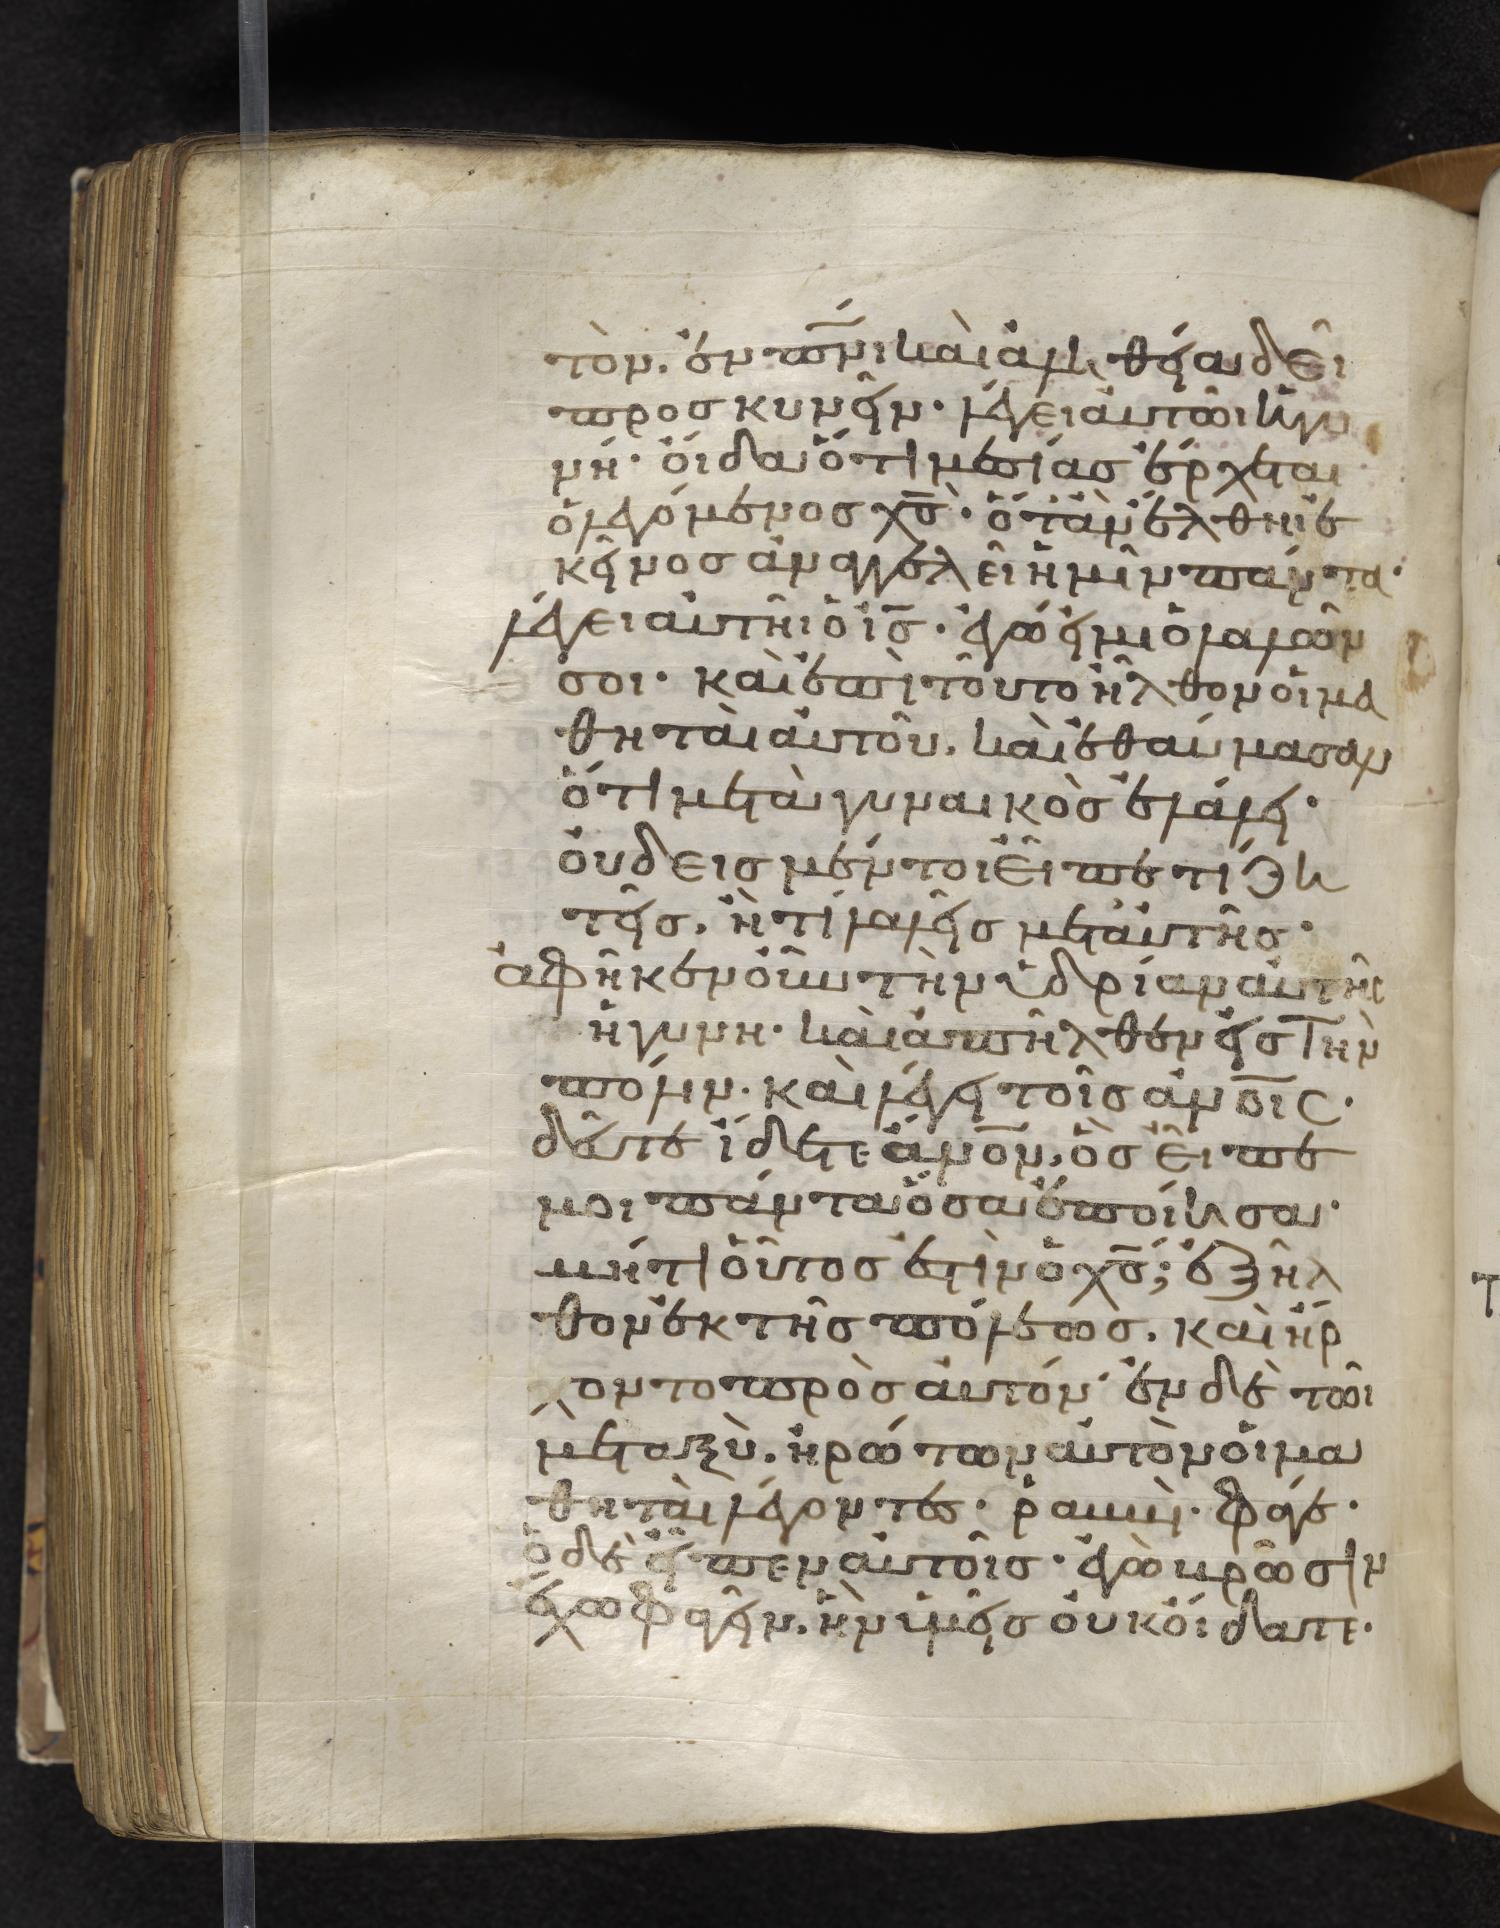 τὸν. ἐν πν̅ι καὶ ἀληθείαι δεῖ
προσκυνεῖν· λέγει αὐτῶι ἡ γυ
νή· οἶδα ὅτι μεσίας ἔρχεται
ὁ λεγόμενος χς̅· ὅταν ἔλθηι ἐ
κεῖνος ἀναγγελεῖ ἡμῖν πάντα·
λέγει αὐτῆι ὁ ις̅· ἐγώ εἰμι ὁ λαλῶν
σοι· καὶ ἐπὶ τοῦτο ἦλθον οἱ μα
θηταὶ αὐτοῦ. καὶ ἐθαύμασαν
ὅτι μετὰ γυναικὸς ἐλάλει·
οὐδεὶς μέντοι εἶπε τί ζη
τεῖς. ἢ τί λαλεῖς μετ' αὐτῆς·
ἀφῆκεν οὖν τὴν ὑδρίαν αὐτῆς
ἡ γυνη· καὶ ἀπῆλθεν εἰς τὴν
πόλιν· καὶ λέγει τοῖς ἀνοι̅ς·
δεῦτε ἴδετε ἀνο̅ν, ὃς εἶπε
μοι πάντα ὅσα ἐποίησα·
μήτι οὗτος ἐστὶν ὁ χς̅; ἐξῆλ
θον ἐκ τῆς πόλεως. καὶ ἤρ
χοντο πρὸς αὐτόν· ἐν δὲ τῶι
μεταξὺ. ἠρώτων αὐτὸν οἱ μα
θηταὶ λέγοντες· ῥαββὶ· φάγε·
ὁ δὲ εἶπεν αὐτοῖς· ἐγὼ βρῶσιν
ἔχω φαγεῖν. ἣν ὑμεῖς οὐκ οἴδατε·